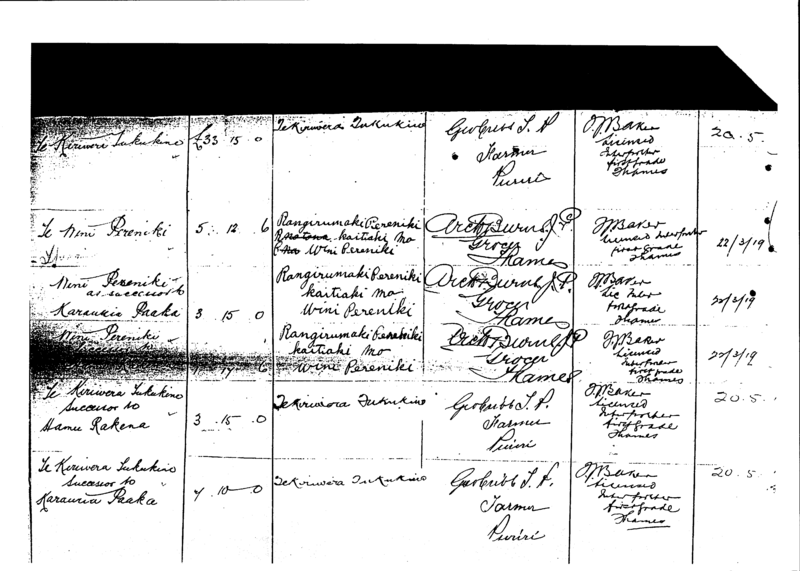 Te Kiriwera Tukukino
£33 15 0
Te Kiriwera Tukukino
Geo Cribb J. P.
Farmer
Puriri
O J Baker
Licensed
Interpreter
first Grade
Thames
20.5.
Te Wini Pereniki
5. 12. 6
Rangirumaki Pereniki
kaitiaki mo
Wini Pereniki
Arch Burns J.P.
Grocer
Thames
O J Baker
licensed Interpreter
first Grade
Thames
22/3/19
Wini Pereniki
as successor to
Karauria Paaka
3 15 0
Rangirumaki Pereniki
kaitiaki mo
Wini Pereniki
Arch Burns J.P.
Grocer
Thames
O J Baker
Lic Inter
first grade
Thames
22/3/19
Wini Pereniki
17 6
Rangirumaki Pereniki
kaitiaki mo
Wini Pereniki
Arch Burns J P
Grocer
Thames
O J Baker
Licensed
Interpreter
first grade
Thames
22/3/19
Te Kiriwera Tukukino
Successor to
Hamu Rakena
3 .15 .0
Te Kiriwera Tukukino
Geo Cribb J. P.
Farmer
Puriri
O J Baker
Licensed
Interpreter
first Grade
Thames
20.5.
Te Kiriwera Tukukino
Successor to
Karauria Paaka
7 10 0
Te Kiriwera Tukukino
Geo Cribb J. P.
Farmer
Puriri
O J Baker
Licensed
Interpreter
first Grade
Thames
20.5.